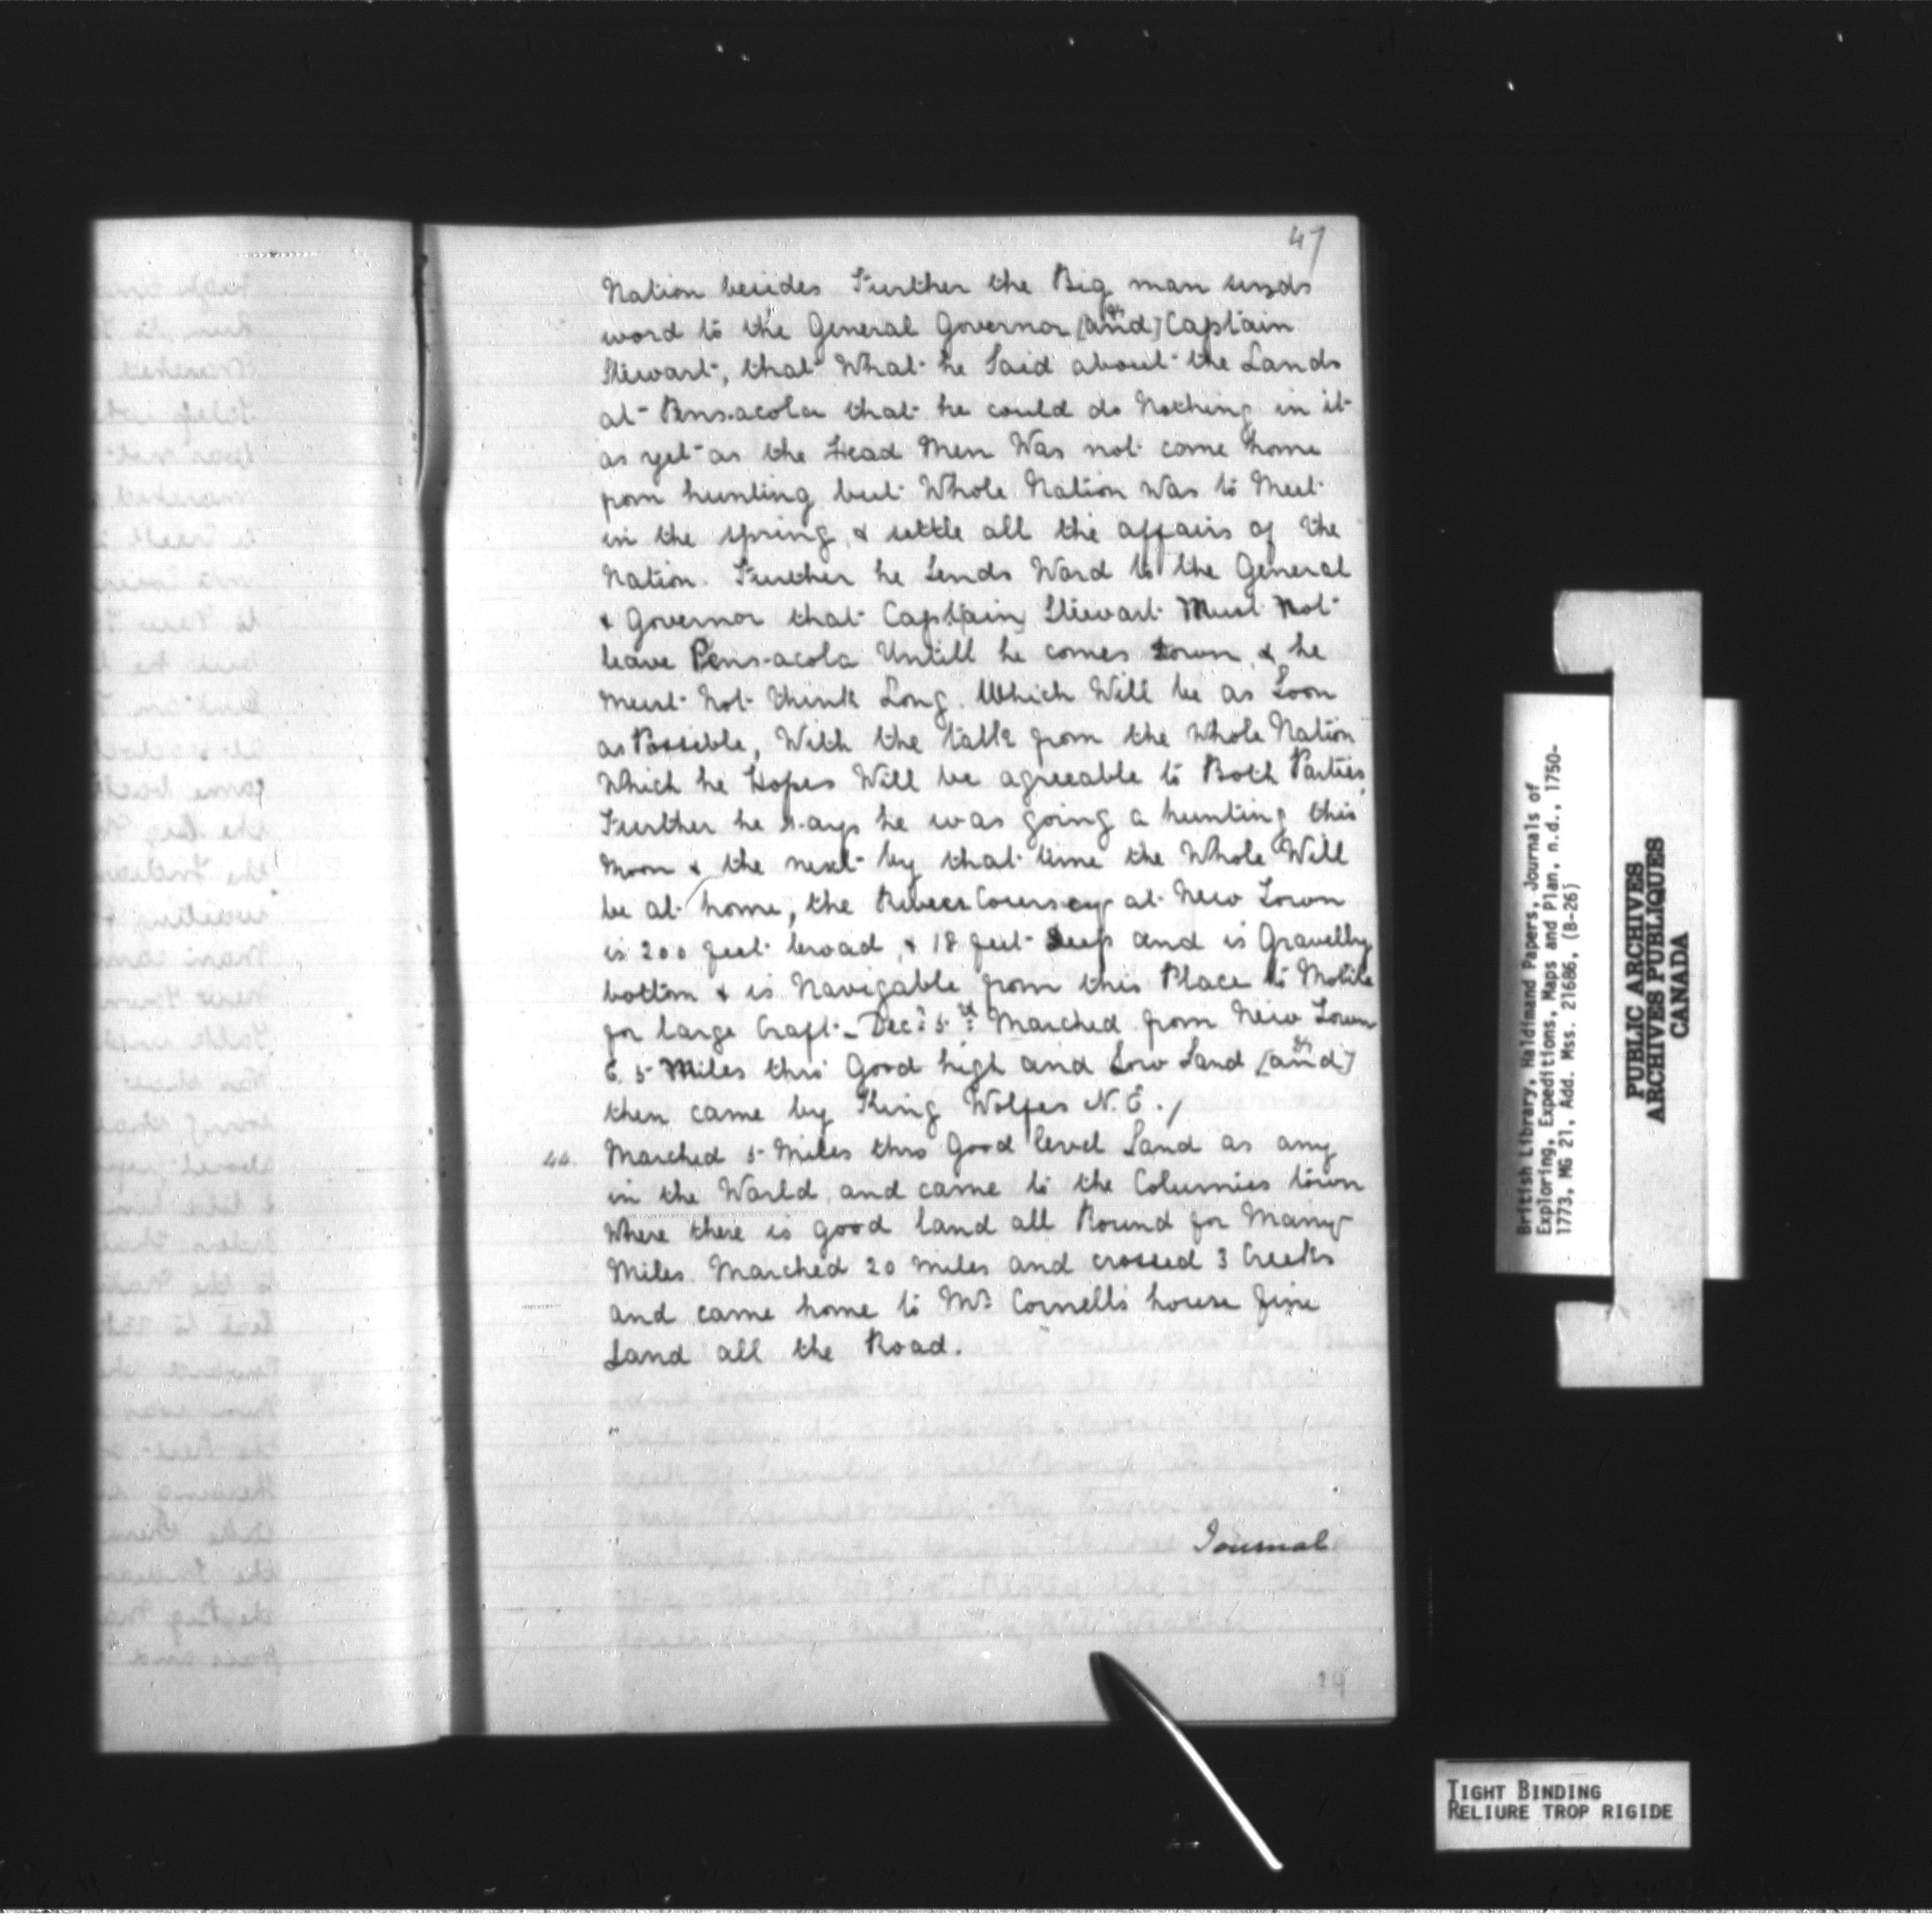 47
Nation besides Further the Big man sends
word to the General Governor [and] Captain
Stewart, that What he Said about the Lands
at Pensacola that he could do Nothing in it
as yet as the Head Men Was not come home
from hunting but Whole Nation Was to Meet
in the spring, & settle all the affairs of the
Nation. Further he Sends Word to the General
& Governor that Captain Stewart Must Not
leave Pensacola Untill he comes down, & he
must Not think Long. Which Will be as Soon
as Possible, With the talk from the Whole Nation
Which he Hopes Will be agreeable to Both Parties,
Further he says he was going a hunting this
Moon & the next by that time the Whole Will
be at home, the at New Town
is 200 feet broad, & 18 feet deep and is Gravelly
bottom & is Navigable from this Place to Mobile
for large Craft - Marched from New Town
E. 5 Miles thro' Good high and Low Land [and]
then came by King Wolfes N.E./
Marched 5 Miles thro Good level Land as any
in the World, and came to the town
Where there is good land all Round for Many
Miles. Marched 20 Miles and crossed 3 Creeks
and came home to Mr Cornells house fine
Land all the Road.
Journal
29
British Library, Haldimand Papers, Journals of
Exploring, Expeditions, Maps and Plan, n.d., 1750-
1773, MG 21, Add. Mss. 21686, (B-26)
PUBLIC ARCHIVES
ARCHIVES PUBLIQUES
CANADA
TIGHT BINDING
RELIURE TROP RIGIDE